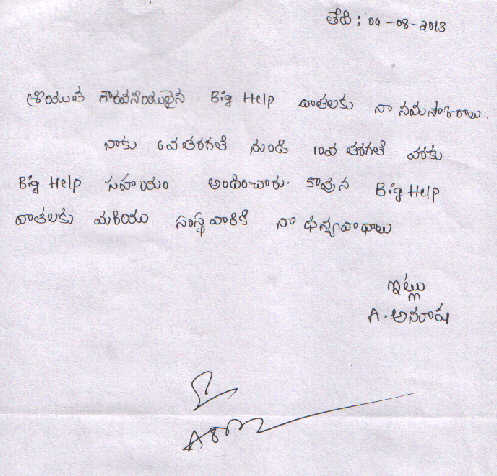 తేది : 04-08-2013
శ్రీయుత గౌరవనీయులైన Big Help దాతలకు నా నమస్కారాలు.
నాకు 6వ తరగతి నుండి 10వ తరగతి వరకు
Big Help సహాయం అందించారు. కావున Big Help
దాతలకు మరియు సంస్థ వారికి నా ధన్యవాదాలు
ఇట్లు
A. అనూష